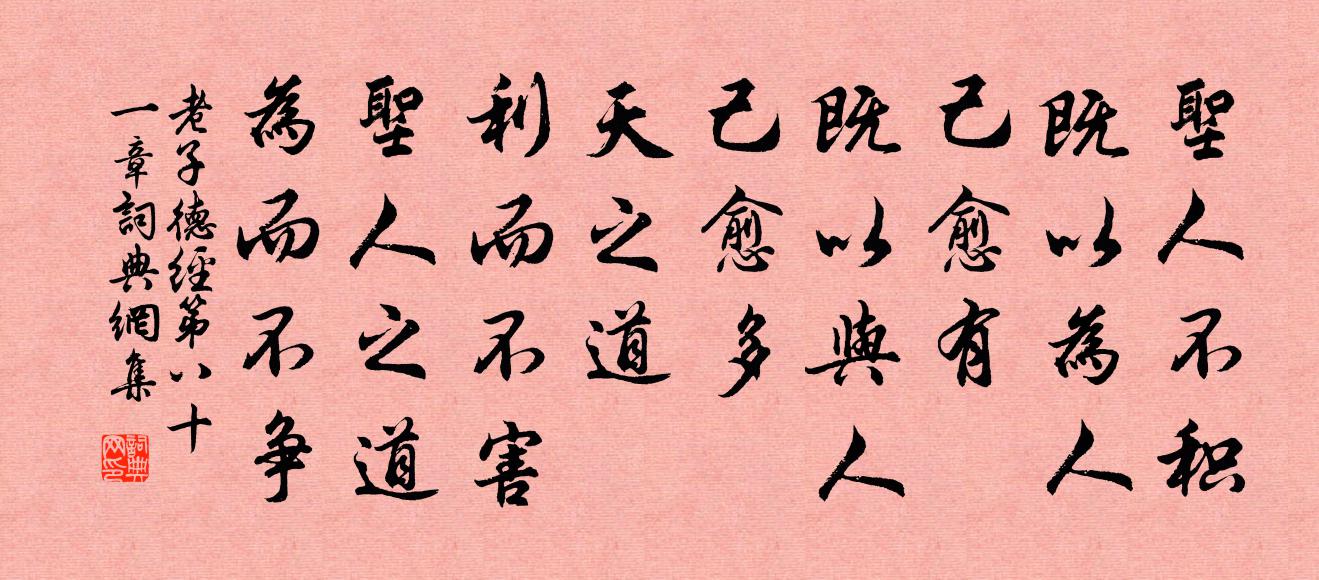 聖人不积
既以為人
己愈有
既以與人
己愈多
天之道
利而不害
聖人之道
為而不争
老子德經第八十
一章詞典網集
詞典网印